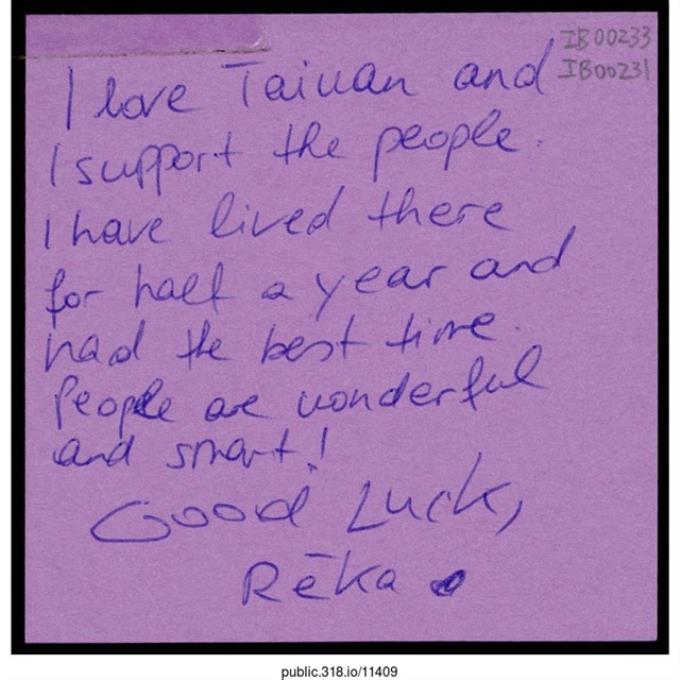 IB00233
IB00231
I love Taiwan and
I support the people.
I have lived there
for half a year and
had the best time.
People are wonderful
and smart!
Good Luck,
Rēka
public.318.io/11409